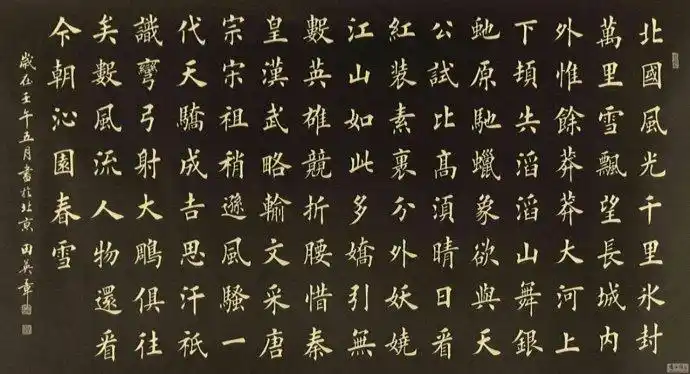 北國風光千里氷封
萬里雪飄望長城内
外惟餘莽莽大河上
下頓失滔滔山舞銀
虵原馳蠟象欲與天
公試比髙須晴日看
紅裝素裹分外妖嬈
江山如此多嬌引無
數英雄競折腰惜秦
皇漢武略輸文采唐
宗宋祖稍遜風騷一
代天驕成吉思汗祇
識彎弓射大鵰俱往
矣數風流人物還看
今朝沁園春雪
歲在壬午五月書於北京田英章